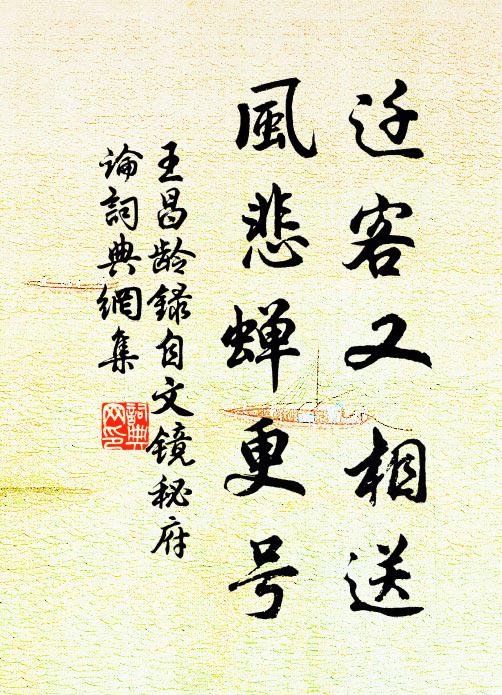 迁客又相送
風悲蝉更号
王昌龄録自文鏡秘府
論詞典網集
詞典
网印